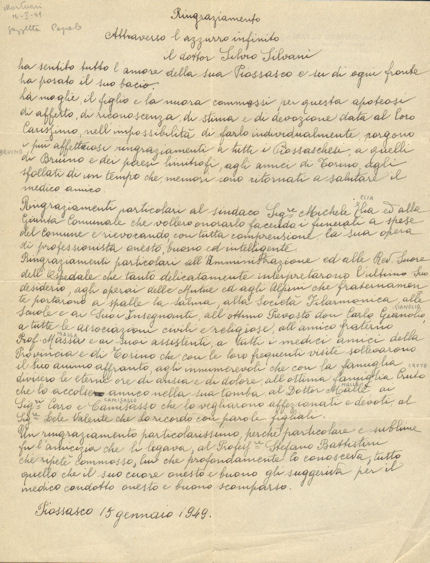 Mortuari
16-I-49
Gazzetta Popolo
Ringraziamento
Attraverso l'azzurro infinito
il dottor Silvio Silvani
ha sentito tutto l'amore della sua Piossasco e su di ogni fronte
ha posato il suo bacio.
La moglie, il figlio e la nuora commossi per questa apoteosi
di affetto, di riconoscenza, di stima e di devozione data al loro
Carissimo, nell'impossibilità di farlo individualmente porgono
i più affettuosi ringraziamenti a tutti i Piossaschesi, a quelli
BRUINO
di Bruino e dei paesi limitrofi, agli amici di Torino, agli
sfollati di un tempo che memori sono ritornati a salutare il
medico amico.
ELIA
Ringraziamenti particolari al sindaco Sig.re Michele Elia ed alla
Giunta Comunale che vollero onorarlo facendo i funerali a spese
del Comune e rievocando con tutta comprensione la sua opera
di professionista onesto, buono ed intelligente.
Ringraziamenti particolari all'Amministrazione ed alle Rev. Suore
dell'Ospedale che tanto delicatamente interpretarono l'ultimo Suo
desiderio, agli operai delle Mutue ed agli Alpini che fraternamen
te portarono a spalle la salma, alla Società Filarmonica alle
Scuole e ai Suoi Insegnanti, all'Ottimo Prevosto don Carlo
a tutte le associazioni civili e religiose, all'amico fraterno
Prof. Massia e ai Suoi assistenti, a tutti i medici amici della
Provincia e di Torino che con le loro frequenti visite sollevarono
il Suo animo affranto, agli innumerevoli che con la famiglia
divisero le eterne ore di ansia e di dolore, all'ottima famiglia
che lo accolse amico nella sua tomba al Dottor ai
Sig.ri Caro e Camisasso che lo vegliarono affezionati e devoti al
Sig.re Valente che lo ricordò con parole figliali.
Un ringraziamento particolarissimo, perchè particolare e sublime
fu l'amicizia che li legava, al Profess.re Stefano Battistini
che ripetè commosso, lui che profondamente lo conosceva, tutto
quello che il suo cuore onesto e buono gli suggeriva per il
medico condotto onesto e buono scomparso.
Piossasco 15 gennaio 1949.